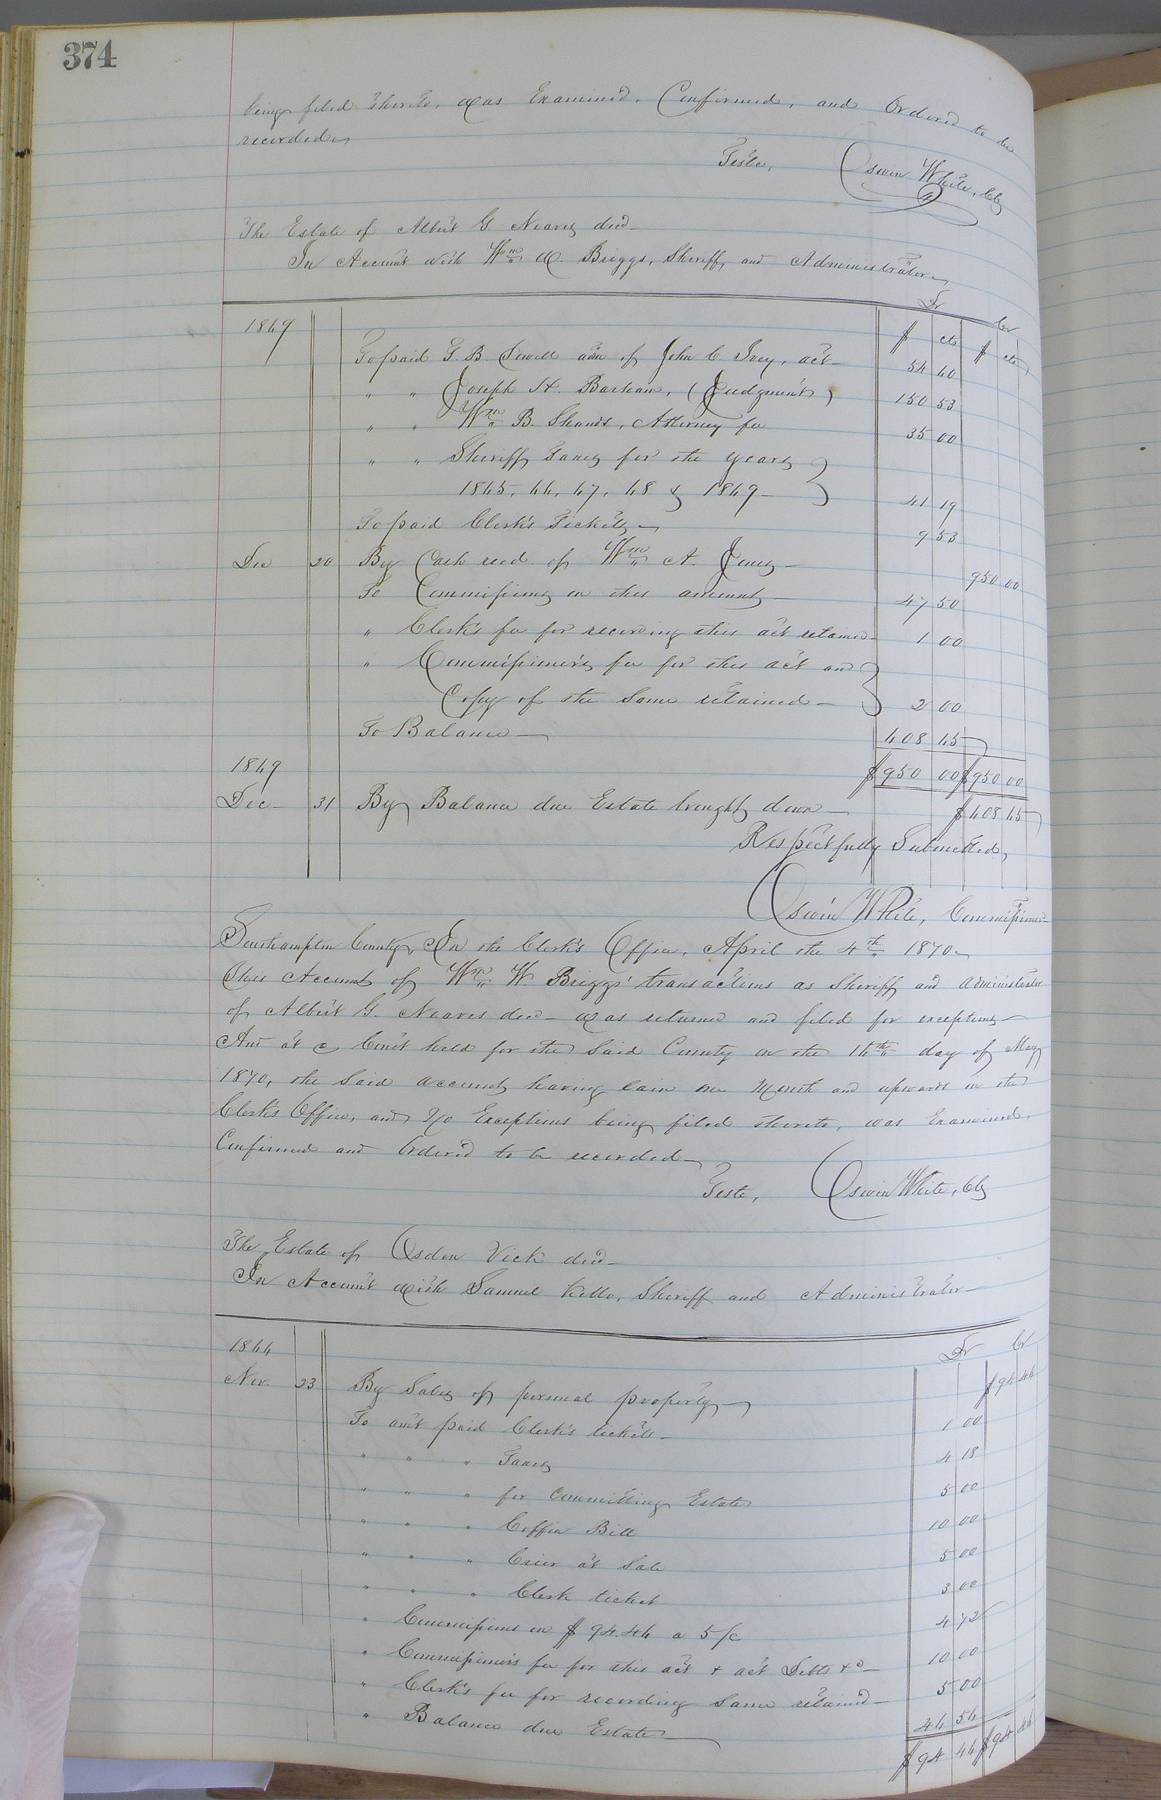 374
being filed thereto, was Examined, Confirmed, and Ordered to be
recorded
Teste, Oswin White, Clk
The Estate of Albert G Neaves decd
In Account with Wm W. Briggs, Sheriff, and Administrator
Dr Cr
1869 $ cts $ cts
To paid G. B. adm of John C Ivey, act 54 60
" " Joseph H. Barham, (Judgment) 150 53
" " Wm B. Shands, Attorney fee 35 00
" " Sheriff Taxes for the years
1865, 66, 67, 68 & 1869 41 19
To paid Clerk's Tickets 9 53
Dec 20 By Cash recd of Wm A. Jones 950 00
To Commissions on this amount 47 50
" Clerk's fee for recording this act retained 1 00
" Commissioner's fee for this act and
Copy of the same retained 2 00
To Balance 608 65
1869 $950 00 $950 00
Dec 31 By Balance due Estate brought down $608 65
Respectfully Submitted,
Oswin White, Commissioner
Southampton County, In the Clerk's Office, April the 4th 1870
This Account of Wm W. Briggs' transactions as Sheriff and administrator
of Albert G. Neaves decd was returned and filed for exceptions
And at a Court held for the Said County on the 16th day of May
1870, the Said account having lain one Month and upwards in the
Clerk's Office, and No Exceptions being filed thereto, was Examined,
Confirmed and Ordered to be recorded
Teste, Oswin White, Clk
The Estate of Osdon Vick decd
In Account with Samuel Kello, Sheriff and Administrator
1866 Dr Cr
Nov. 23 By Sales of personal property $94 46
To amt paid Clerk's tickets 1 00
" " " Taxes 4 18
" " " for Committing Estate 5 00
" " " Coffin Bill 10 00
" " " Crier at Sale 5 00
" " " Clerk ticket 3 00
" Commissions on $94.46 a 5 pc 4 72
" Commissioner's fee for this act & act Debts &c 10 00
" Clerk's fee for recording same retained 5 00
" Balance due Estate 46 56
$94 46 $94 46